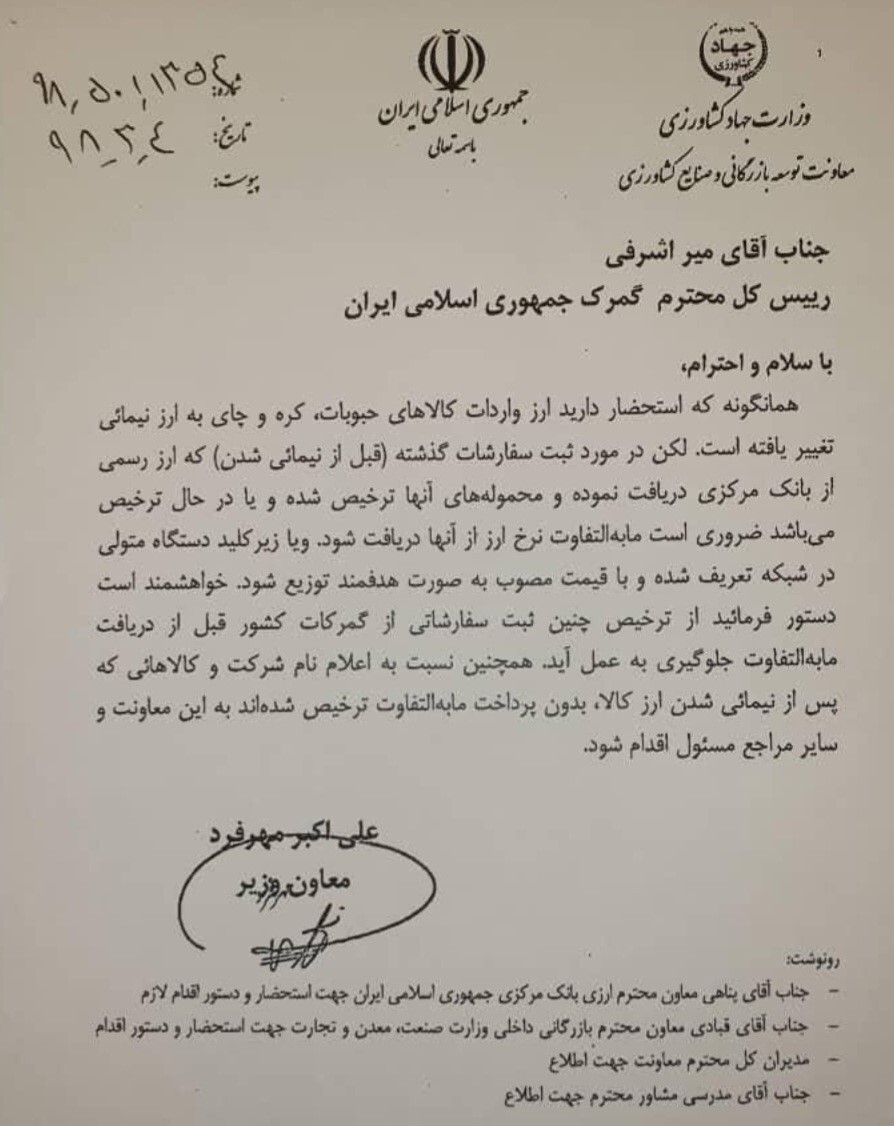 همه با هم
جهاد
کشاورزی
۱
وزارت جهاد کشاورزی
معاونت توسعه بازرگانی و صنایع کشاورزی
جمهوری اسلامی ایران
باسمه تعالی
شماره: ۹۸،۵۰۱،۱۳۵۴
تاریخ: ۹۸-۳-۴
پیوست:
جناب آقای میر اشرفی
رییس کل محترم گمرک جمهوری اسلامی ایران
با سلام و احترام،
همانگونه که استحضار دارید ارز واردات کالاهای حبوبات، کره و چای به ارز نیمائی
تغییر یافته است. لکن در مورد ثبت سفارشات گذشته (قبل از نیمائی شدن) که ارز رسمی
از بانک مرکزی دریافت نموده و محموله‌های آنها ترخیص شده و یا در حال ترخیص
می‌باشد ضروری است مابه‌التفاوت نرخ ارز از آنها دریافت شود. ویا زیرکلید دستگاه متولی
در شبکه تعریف شده و با قیمت مصوب به صورت هدفمند توزیع شود. خواهشمند است
دستور فرمائید از ترخیص چنین ثبت سفارشاتی از گمرکات کشور قبل از دریافت
مابه‌التفاوت جلوگیری به عمل آید. همچنین نسبت به اعلام نام شرکت و کالاهائی که
پس از نیمائی شدن ارز کالا، بدون پرداخت مابه‌التفاوت ترخیص شده‌اند به این معاونت و
سایر مراجع مسئول اقدام شود.
علی اکبر مهرفرد
معاون وزیر
رونوشت:
- جناب آقای پناهی معاون محترم ارزی بانک مرکزی جمهوری اسلامی ایران جهت استحضار و دستور اقدام لازم
- جناب آقای قبادی معاون محترم بازرگانی داخلی وزارت صنعت، معدن و تجارت جهت استحضار و دستور اقدام
- مدیران کل محترم معاونت جهت اطلاع
- جناب آقای مدرسی مشاور محترم جهت اطلاع